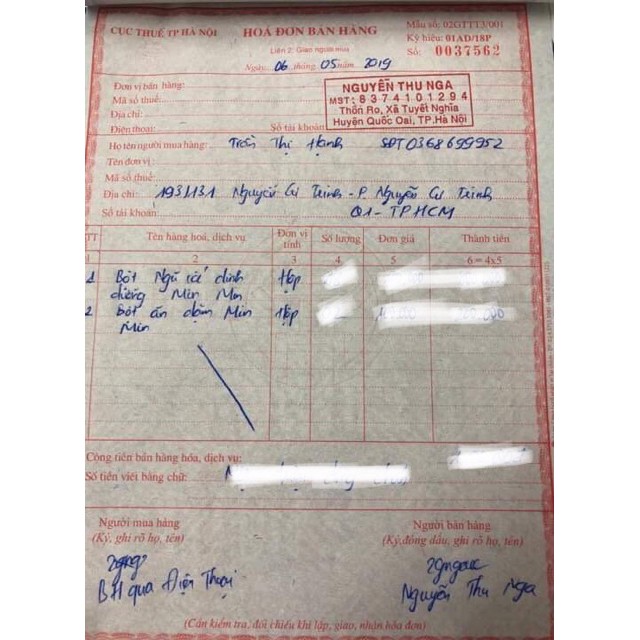 CỤC THUẾ TP HÀ NỘI
HOÁ ĐƠN BÁN HÀNG
Mẫu số: 02GTTT3/001
Liên 2: Giao người mua
Ký hiệu: 01AD/18P
Ngày 06 tháng 05 năm 2019
Số: 0037562
Đơn vị bán hàng:
Mã số thuế:
Địa chỉ:
Điện thoại: Số tài khoản
NGUYỄN THU NGA
MST: 8374101294
Thôn Ro, Xã Tuyết Nghĩa
Huyện Quốc Oai, TP.Hà Nội
Họ tên người mua hàng: Trần Thị Hạnh SĐT 0368699952
Tên đơn vị:
Mã số thuế:
Địa chỉ: 193/131 Nguyễn Cư Trinh - P. Nguyễn Cư Trinh
Số tài khoản: Q1 - TPHCM
TT Tên hàng hoá, dịch vụ Đơn vị tính Số lượng Đơn giá Thành tiền
1 2 3 4 5 6 = 4x5
1 Bột Ngũ cốc dinh Hộp
dưỡng Min Min
2 Bột ăn dặm Min Hộp
Min
Cộng tiền bán hàng hóa, dịch vụ:
Số tiền viết bằng chữ:
Người mua hàng
(Ký, ghi rõ họ, tên)
Người bán hàng
(Ký, đóng dấu, ghi rõ họ, tên)
BH qua Điện Thoại
Nguyễn Thu Nga
(Cần kiểm tra, đối chiếu khi lập, giao, nhận hóa đơn)